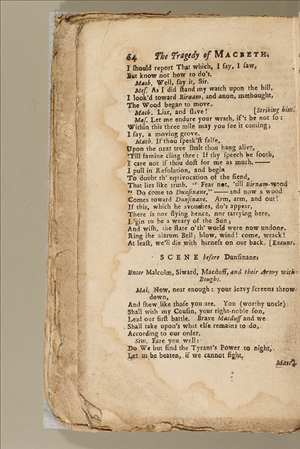 64 The Tragedy of MACBETH.
I ſhould report That which, I ſay, I ſaw,
But know not how to do't.
Macb. Well, ſay it, Sir.
Meſ. As I did ſtand my watch upon the hill,
I look'd toward Birnam, and anon, methought,
The Wood began to move.
Macb. Liar, and ſlave! [Striking him.
Meſ. Let me endure your wrath, if't be not ſo:
Within this three mile may you ſee it coming;
I ſay, a moving grove.
Macb. If thou ſpeak'ſt falſe,
Upon the next tree ſhalt thou hang alive,
'Till famine cling thee: If thy ſpeech be ſooth,
I care not if thou doſt for me as much.——
I pull in Reſolution, and begin
To doubt th' equivocation of the fiend,
That lies like truth. " Fear not, 'till Birnam-wood
" Do come to Dunſinane,"——and now a wood
Comes toward Dunſinane. Arm, arm, and out!
If this, which he avouches, do's appear,
There is nor flying hence, nor tarrying here,
I 'gin to be a weary of the Sun;
And wiſh, the ſtate o'th' world were now undone.
Ring the alarum Bell; blow, wind! come, wrack!
At leaſt, we'll die with harneſs on our back. [Exeunt.
SCENE before Dunſinane:
Enter Malcolm, Siward, Macduff, and their Army with
Boughs.
Mal. Now, near enough: your leavy ſcreens throw
down,
And ſhew like thoſe you are. You (worthy uncle)
Shall with my Couſin, your right-noble ſon,
Lead our firſt battle. Brave Macduff and we
Shall take upon's what elſe remains to do,
According to our order.
Siw. Fare you well:
Do We but find the Tyrant's Power to night,
Let us be beaten, if we cannot fight,
Macd.